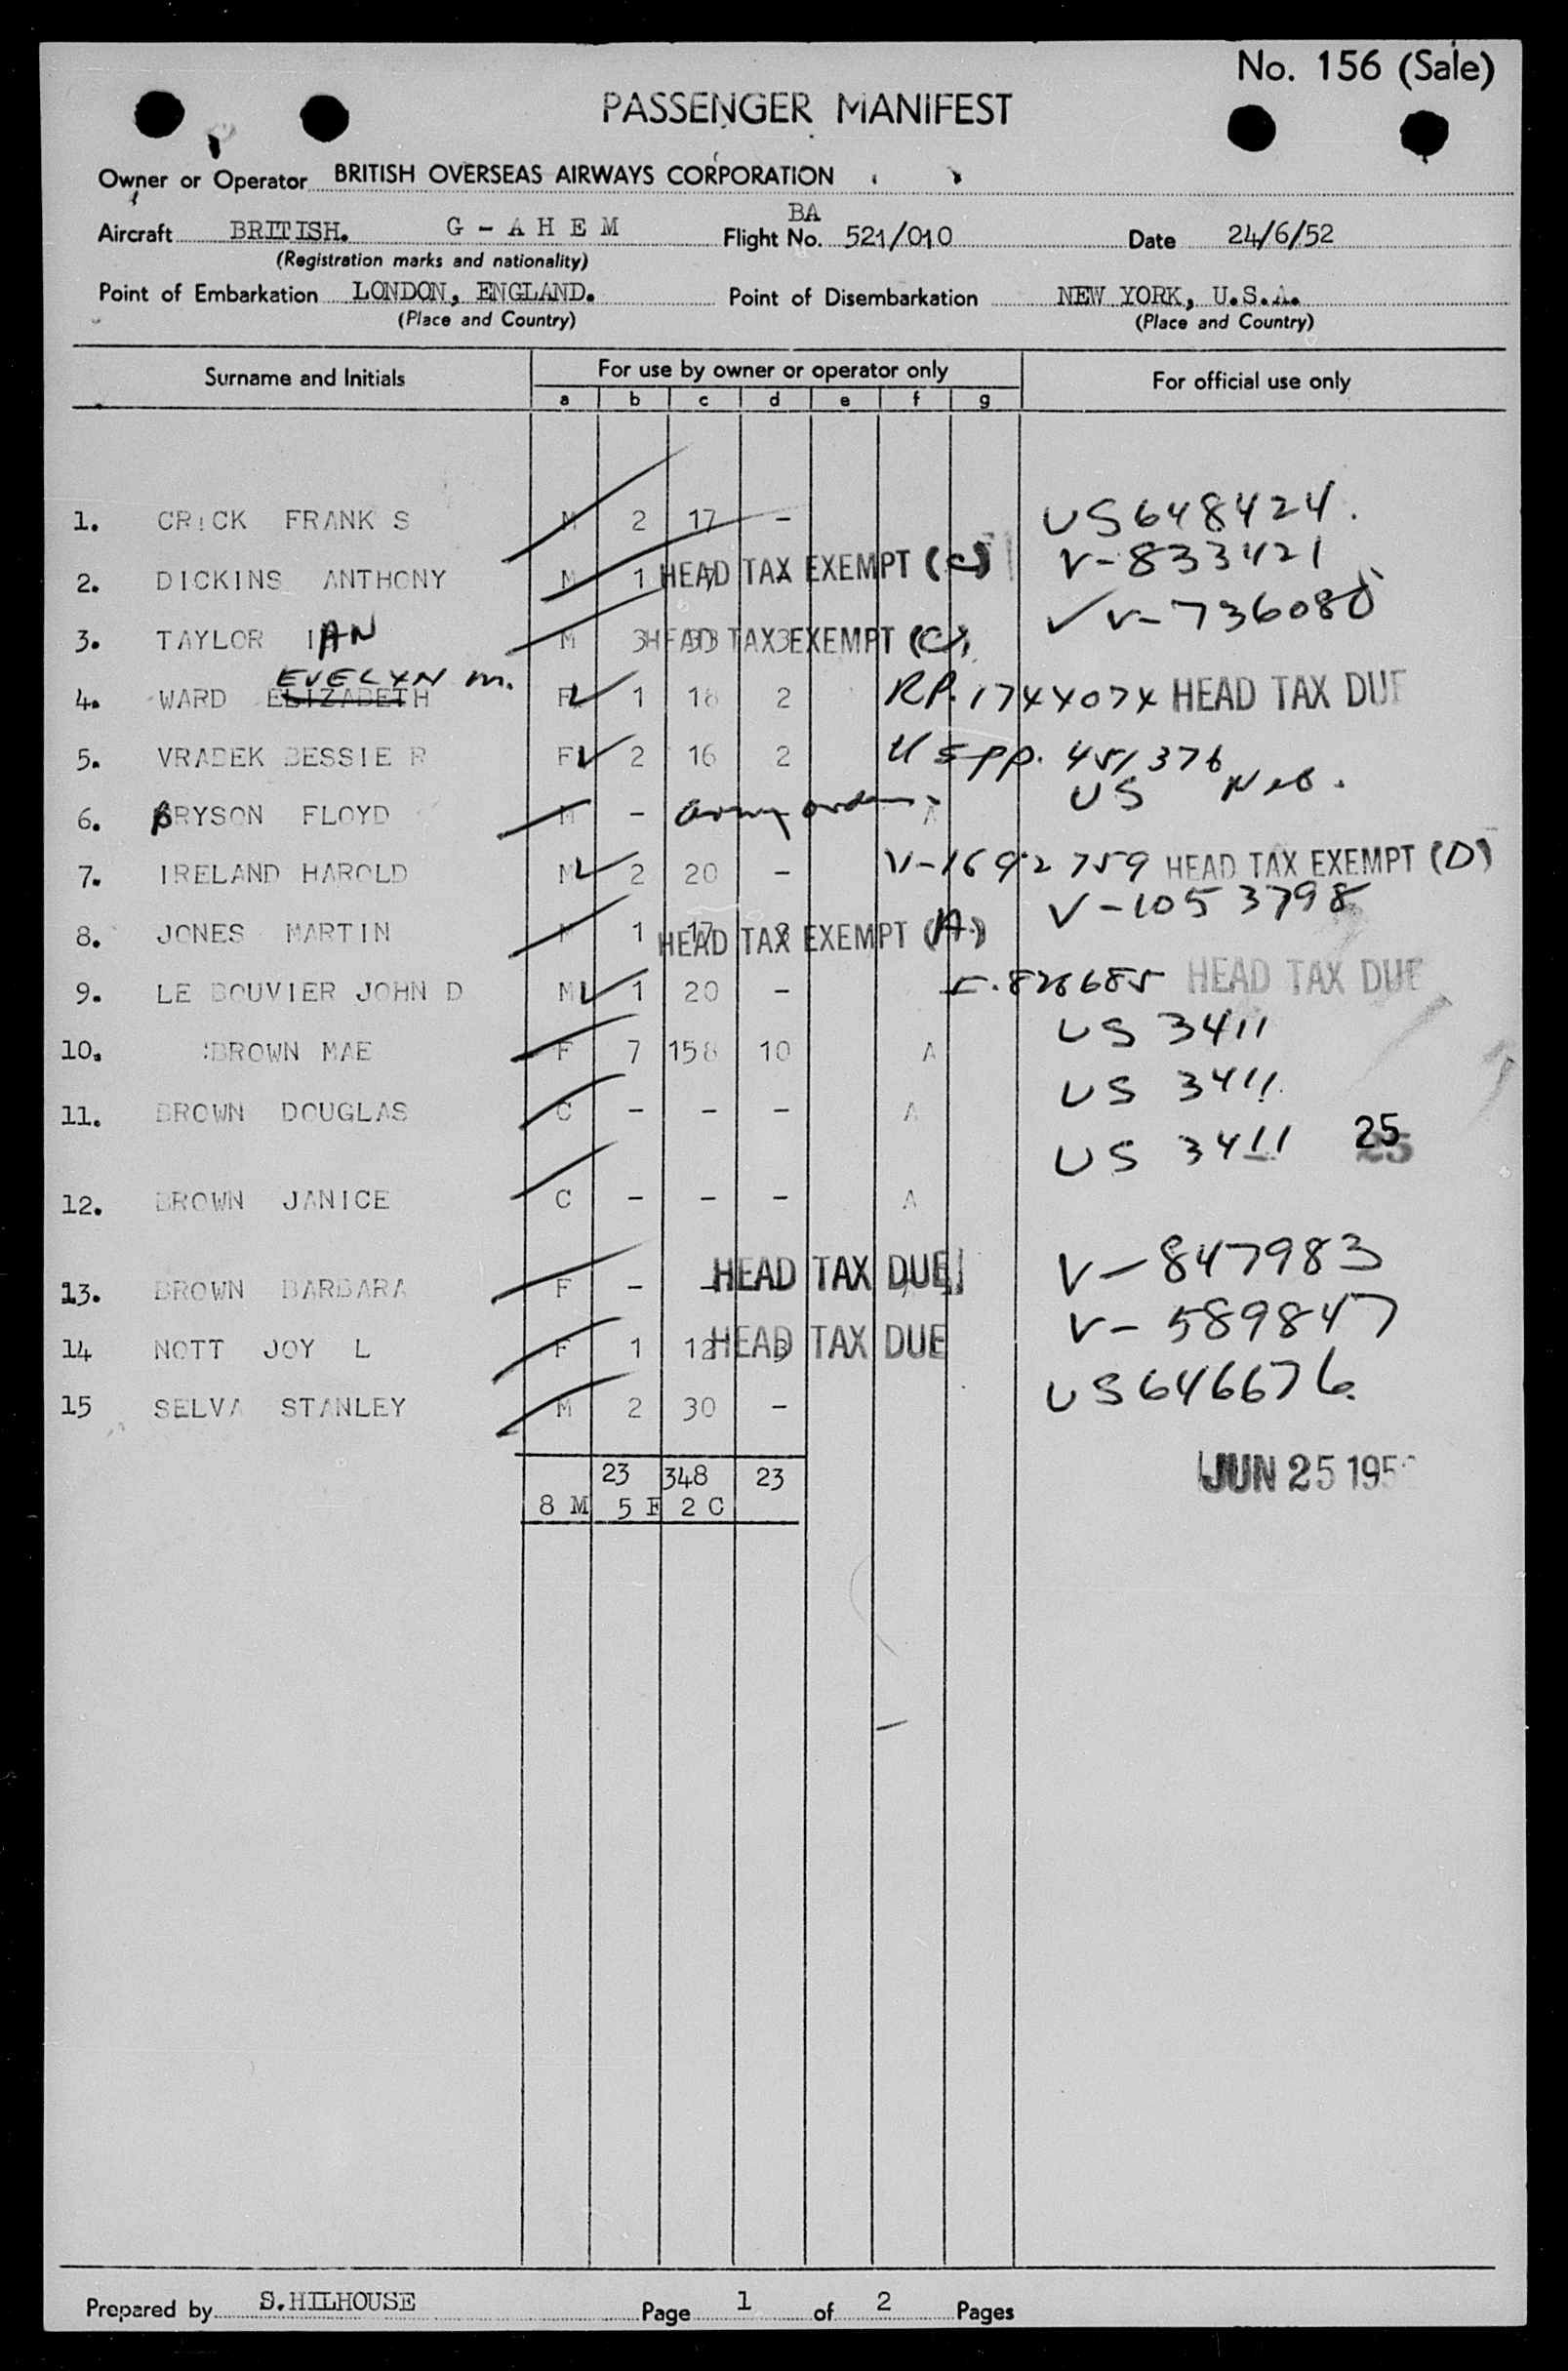 No. 156 (Sale)
PASSENGER MANIFEST
Owner or Operator BRITISH OVERSEAS AIRWAYS CORPORATION
Aircraft BRITISH. G - A H E M Flight No. BA 521/010 Date 24/6/52
(Registration marks and nationality)
Point of Embarkation LONDON, ENGLAND. Point of Disembarkation NEW YORK, U.S.A.
(Place and Country) (Place and Country)
Surname and Initials For use by owner or operator only For official use only
a b c d e f g
1. CRICK FRANK S M 2 17 - US648424.
2. DICKINS ANTHONY M 1 HEAD TAX EXEMPT (C) V-833421
3. TAYLOR IAN M 3 33 3 HEAD TAX EXEMPT (C) V-736080
EVELYN M.
4. WARD ELIZABETH F 1 18 2 RP. 1744074 HEAD TAX DUE
5. VRADEK BESSIE R F 2 16 2 US pp. 451376
6. BRYSON FLOYD M - army orders A US Neb.
7. IRELAND HAROLD M 2 20 - V-1692759 HEAD TAX EXEMPT (D)
8. JONES MARTIN M 1 17 HEAD TAX EXEMPT (A) V-1053798
9. LE BOUVIER JOHN D M 1 20 - 828685 HEAD TAX DUE
10. BROWN MAE F 7 158 10 A US 3411
11. BROWN DOUGLAS C - - - A US 3411
12. BROWN JANICE C - - - A US 3411 25
13. BROWN BARBARA F - - HEAD TAX DUE V-847983
14 NOTT JOY L F 1 12 3 HEAD TAX DUE V-589847
15 SELVA STANLEY M 2 30 - US646676
23 348 23
8 M 5 F 2 C
JUN 25 195
Prepared by S.HILHOUSE Page 1 of 2 Pages